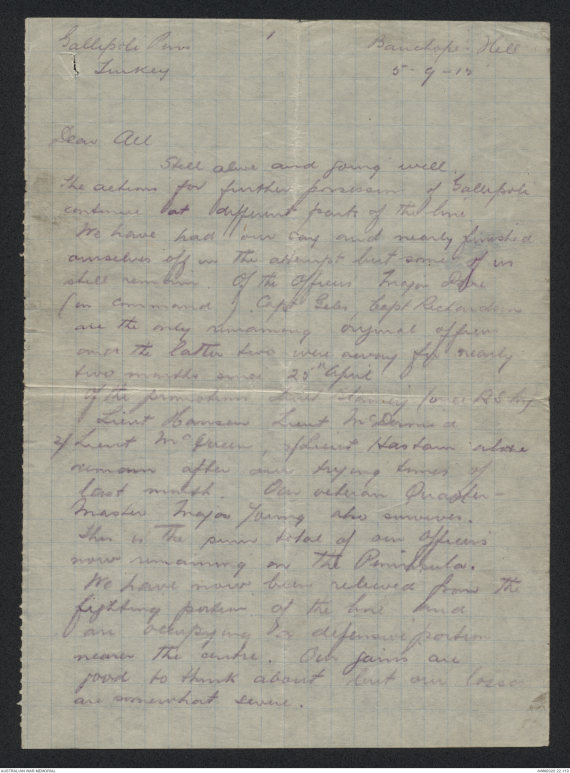 Gallipoli Penn
Turkey
1
Bauchop's Hill
5-9-15
Dear All
Still alive and going well.
The actions for further possession of Gallipoli
continue at different parts of the line
We have had our say and nearly finished
ourselves off in the attempt but some of us
still remain. Of the Officers Major Dare
(in command) Capt Giles, Capt Richardson
are the only remaining original officers
and the latter two were away for nearly
two months since 25th April
Of the promotions Lieut (once R.S.M)
Lieut Hansen Lieut McDermid
2/Lieut McQueen, 2/Lieut Hastain alone
remain after our trying times of
last month. Our veteran Quarter-
Master Major Young also survives.
This is the sum total of our officers
now remaining on the Peninsula.
We have now been relieved from the
fighting portion of the line and
are occupying a defensive portion
nearer the centre. Our gains are
good to think about but our losses
are somewhat severe.
AUSTRALIAN WAR MEMORIAL